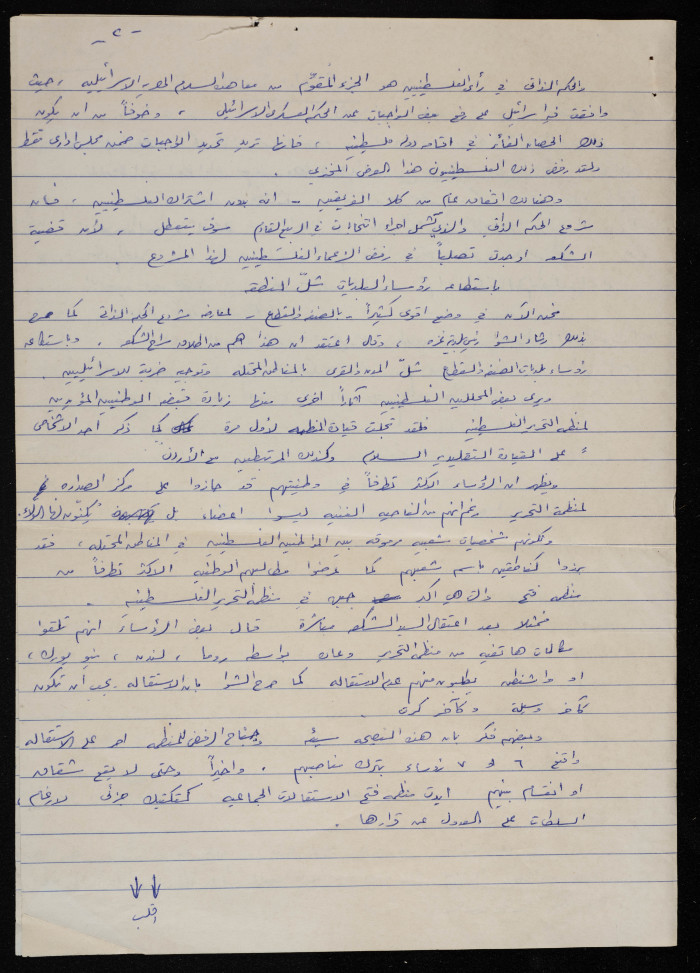 - ٢ -
والحكم الذاتي في رأي الفلسطينيين هو الجزء المقوّم من معاهدة السلام المصرية الاسرائيلية ، حيث
وافقت فيه اسرائيل على رفع بعض الواجبات عن الحكم العسكري الاسرائيلي ، وخوفاً من ان يكون
ذلك الحصاد الفائز في اقامة دولة فلسطينية ، فانها تريد تحديد الواجبات ضمن مجلس اداري فقط
ولقد رفض ذلك الفلسطينيون هذا العرض المخزي .
وهنالك اتفاق عام من كلا الفريقين - انه بدون اشتراك الفلسطينيين ، فان
مشروع الحكم الذاتي والذي يشمل اجراء انتخابات في الربيع القادم سوف يتعطل ، لأن قضية
الشكعه اوجدت تصلباً في رفض الزعماء الفلسطينيين لهذا المشروع .
باستطاعه رؤساء البلديات شلّ المنطقه
نحن الآن في وضع اقوى كثيراً - بالضفه والقطاع - لمعارضة مشروع الحكم الذاتي كما صرح
بذلك رشاد الشوا رئيس بلدية غزه ، وقال اعتقد ان هذا اهم من اطلاق سراح الشكعه . وباستطاعه
رؤساء بلديات الضفه والقطاع شلّ المدن والقرى بالمناطق المحتله وتوجيه ضربة للاسرائيليين .
ويرى بعض المحللين الفلسطينيين آثاراً اخرى منها زيادة قبضه الوطنيين المؤيدين
لمنظمه التحرير الفلسطينيه فلقد تجلت قيادة المنظمه لأول مرة كما ذكر احد الاشخاص
على القيادة التقليديه السلام وكذلك المرتبطين مع الأردن
ويظهر ان الرؤساء الاكثر تطرفاً في وطنيتهم قد حازوا على مركز الصداره
لمنظمة التحرير رغم انهم من الناحيه الفنيه ليسوا اعضاء بل يكنّون لها الولاء.
وبكونهم شخصيات شعبيه مرموقه بين المواطنين الفلسطينيين في المناطق المحتله ، فقد
برزوا كناطقين باسم شعبهم كما عرضوا مطالبهم الوطنيه الاكثر تطرفاً من
منظمه فتح والتي هي اكبر جبهه في منظمه التحرير الفلسطينيه .
فمثلا بعد اعتقال السيد الشكعه مباشرة قال بعض الرؤساء انهم تلقوا
مكالمات هاتفيه من منظمة التحرير وعمان بواسطه روما ، لندن ، نيو يورك ،
او واشنطن يطلبون منهم عدم الاستقاله كما صرح الشوا بان الاستقاله يجب ان تكون
كآخر وسيلة وكآخر كرت
وبعضهم فكر بان هذه النصيحه سيئه وجناح الرفض للمنظمه اصر على الاستقاله
واقنع ٦ او ٧ رؤساء بترك مناصبهم . واخيراً وحتى لا يقع شقاق
او انقسام بينهم ايدت منظمه فتح الاستقالات الجماعيه كتكتيك جزئي لارغام
السلطات على العدول عن قرارها .
اقلب